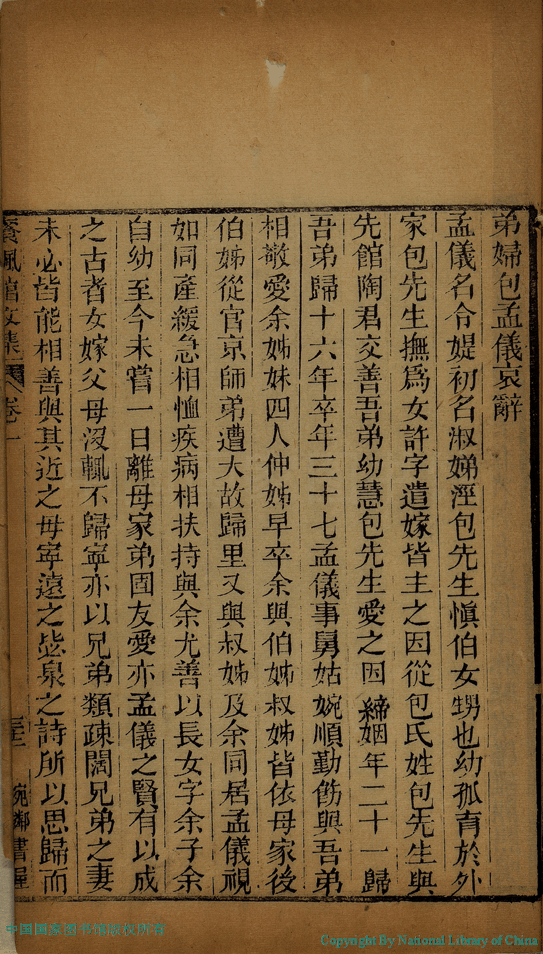 弟婦包孟儀哀辭
孟儀名令媞初名淑娣涇包先生愼伯女甥也幼孤育於外
家包先生撫爲女許字遣嫁皆主之因從包氏姓包先生與
先館陶君交善吾弟幼慧包先生愛之因締姻年二十一歸
吾弟歸十六年卒年三十七孟儀事舅姑婉順勤飭與吾弟
相敬愛余姊妹四人仲姊早卒余與伯姊叔姊皆依母家後
伯姊從官京師弟遭大故歸里又與叔姊及余同居孟儀視
如同產緩急相恤疾病相扶持與余尤善以長女字余子余
自幼至今未嘗一日離母家弟固友愛亦孟儀之賢有以成
之古者女嫁父母沒輒不歸寧亦以兄弟類疎闊兄弟之妻
未必皆能相善與其近之毋寧遠之毖泉之詩所以思歸而
餐楓館文集 卷一 三十二 宛鄰書屋
中国国家图书馆版权所有
Copyright By National Library of China